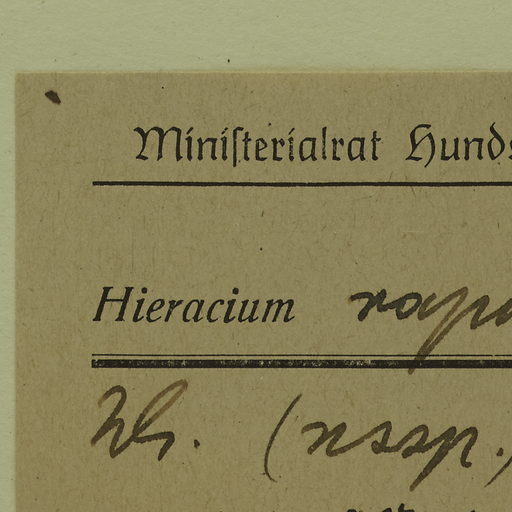 Ministerialrat Hunds
Hieracium rapu
(nssp.)